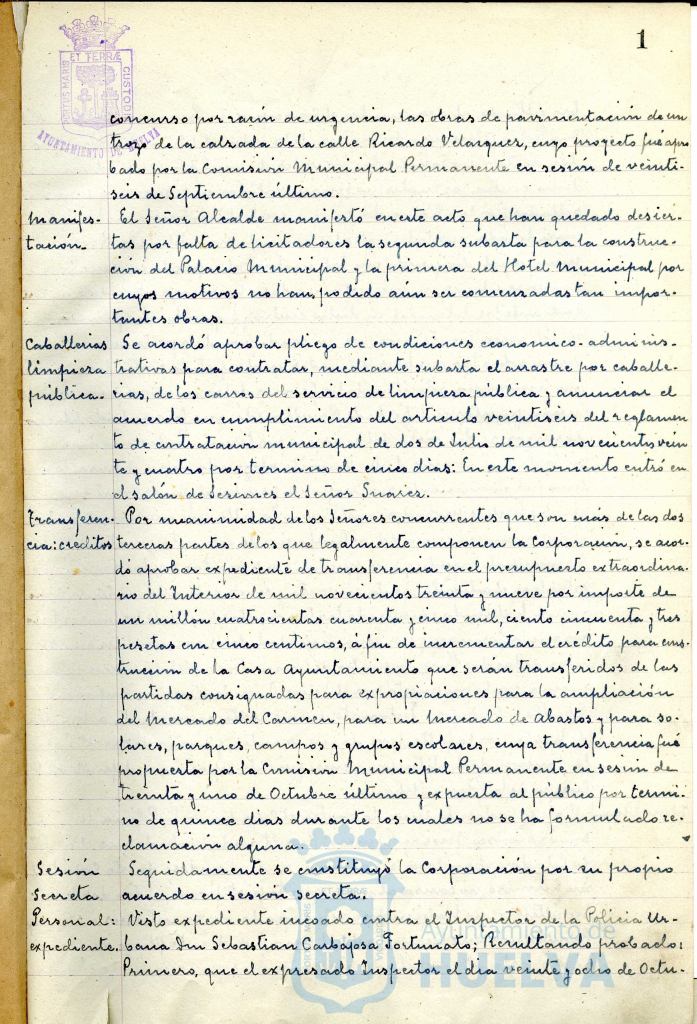 1
PORTUS MARIS ET TERRÆ CUSTODIA
AYUNTAMIENTO DE HUELVA
concurso por razón de urgencia, las obras de pavimentación de un
trozo de la calzada de la calle Ricardo Velazquez, cuyo proyecto fué apro
bado por la Comisión Municipal Permanente en sesión de veinti-
seis de Septiembre último.
Manifes-
tación.-
El Señor Alcalde manifestó en este acto que han quedado desier-
tas por falta de licitadores la segunda subasta para la construc-
ción del Palacio Municipal y la primera del Hotel Municipal por
cuyos motivos no han podido aún ser comenzadas tan impor-
tantes obras.
Caballerias
limpieza
pública.-
Se acordó aprobar pliego de condiciones economico-adminis-
trativas para contratar, mediante subasta el arrastre por caballe-
rias, de los carros del servicio de limpieza pública y anunciar el
acuerdo en cumplimiento del articulo veintiseis del reglamen
to de contratación municipal de dos de Julio de mil novecientos vein
te y cuatro por termino de cinco dias: En este momento entró en
el salón de sesiones el Señor Suarez.
Transferen-
cia: creditos
Por unanimidad de los Señores concurrentes que son más de las dos
terceras partes de los que legalmente componen la Corporación, se acor-
dó aprobar expediente de transferencia en el presupuesto extraordina-
rio del Interior de mil novecientos treinta y nueve por importe de
un millón cuatrocientas cuarenta y cinco mil, ciento cincuenta y tres
pesetas con cinco centimos, á fin de incrementar el crédito para cons-
trucción de la Casa Ayuntamiento que serán transferidos de las
partidas consignadas para expropiaciones para la ampliación
del Mercado del Carmen, para un Mercado de Abastos y para so-
lares, parques, campos y grupos escolares, cuya transferencia fué
propuesta por la Comisión Municipal Permanente en sesión de
treinta y uno de Octubre último y expuesta al público por termi-
no de quince dias durante los cuales no se ha formulado re-
clamación alguna.
Sesión
Secreta
Seguidamente se constituyó la Corporación por su propio
acuerdo en sesión secreta.
Personal:
expediente.
Visto expediente incoado contra el Inspector de la Policia Ur-
bana Don Sebastian Carbajosa Fortunato; Resultando probado:
Primero, que el expresado Inspector el dia veinte y ocho de Octu-
Ayuntamiento de
HUELVA